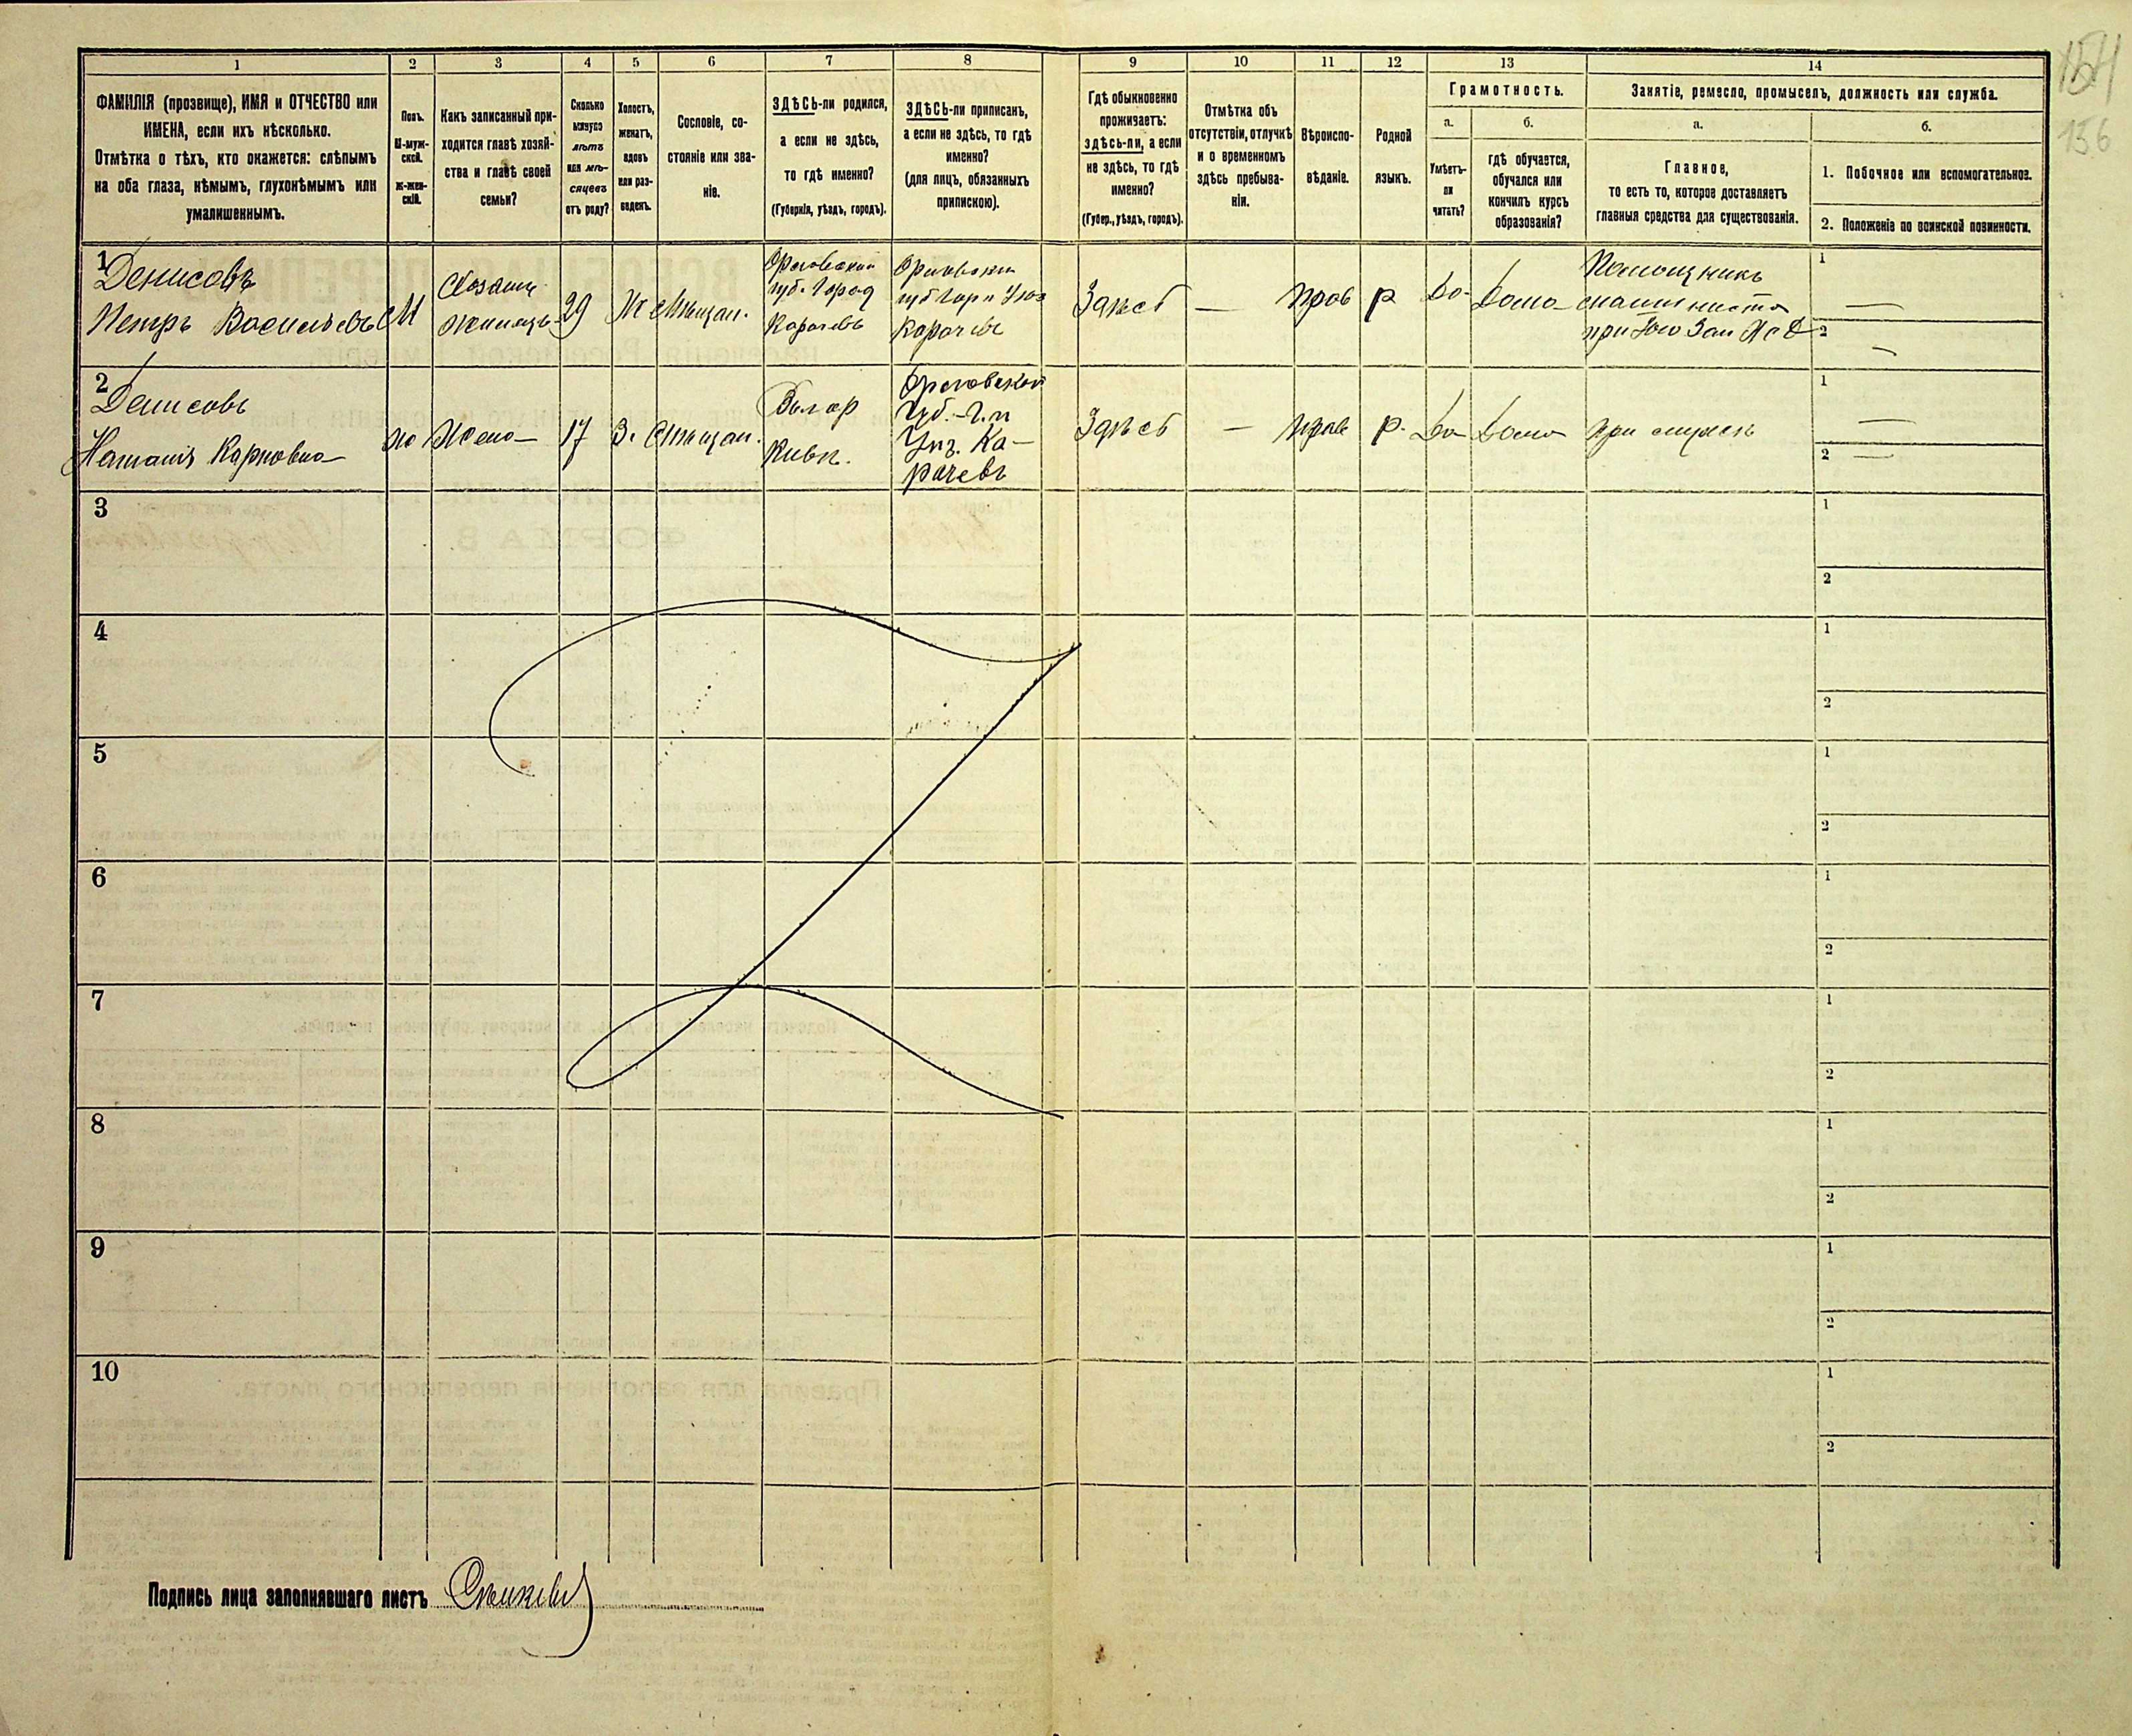 154
156
1
2
3
4
5
6
7
8
9
10
11
12
13
14
ФАМИЛІЯ (прозвище), ИМЯ и ОТЧЕСТВО или
ИМЕНА, если ихъ нѣсколько.
Отмѣтка о тѣхъ, кто окажется: слѣпымъ
на оба глаза, нѣмымъ, глухонѣмымъ или
умалишеннымъ.
Полъ.
М-муж-
ской.
Ж-жен-
скій.
Какъ записанный при-
ходится главѣ хозяй-
ства и главѣ своей
семьи?
Сколько
минуло
лѣтъ
или мѣ-
сяцевъ
отъ роду?
Холостъ,
женатъ,
вдовъ
или раз-
веденъ.
Сословіе, со-
стояніе или зва-
ніе.
ЗДѢСЬ-ли родился,
а если не здѣсь,
то гдѣ именно?
(Губернія, уѣздъ, городъ).
ЗДѢСЬ-ли приписанъ,
а если не здѣсь, то гдѣ
именно?
(для лицъ, обязанныхъ
припискою).
Гдѣ обыкновенно
проживаетъ:
здѣсь-ли, а если
не здѣсь, то гдѣ
именно?
(Губер., уѣздъ, городъ).
Отмѣтка объ
отсутствіи, отлучкѣ
и о временномъ
здѣсь пребыва-
ніи.
Вѣроиспо-
вѣданіе.
Родной
языкъ.
Грамотность.
а.
б.
Умѣетъ-
ли
читать?
гдѣ обучается,
обучался или
кончилъ курсъ
образованія?
Занятіе, ремесло, промыселъ, должность или служба.
а.
б.
Главное,
то есть то, которое доставляетъ
главныя средства для существованія.
1. Побочное или вспомогательное.
2. Положеніе по воинской повинности.
1
Денисовъ
Петръ Васильевъ
М
Хозаинъ
29
Ж
Мѣщан.
Орловской
губ. Город
Карачевъ
Карачевъ
Здѣсь
—
прав
р
Да
Дома
Помощникъ
машиниста
1 —
2 —
2
Денисовъ
Наталія Карповна
Жена
17
З.
Мѣщан.
Кіевъ.
Орловской
Губ.
Ка-
рачевъ
Здѣсь
—
прав
р.
Да
Дома
при мужѣ
1 —
2 —
3
1
2
4
1
2
5
1
2
6
1
2
7
1
2
8
1
2
9
1
2
10
1
2
Подпись лица заполнявшаго листъ